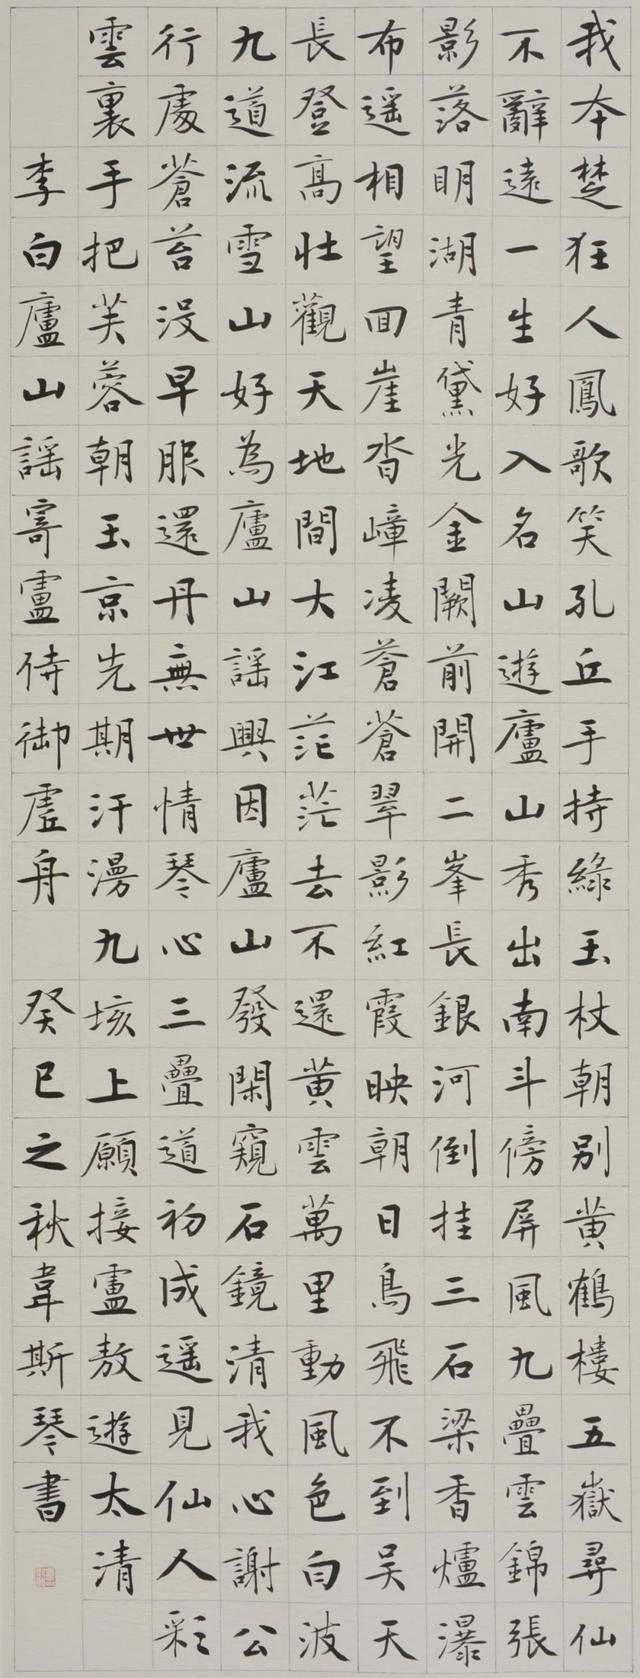 我本楚狂人鳳歌笑孔丘手持綠玉杖朝别黄鶴樓五嶽尋仙
不辭遠一生好入名山遊廬山秀出南斗傍屏風九疊雲錦張
影落明湖青黛光金闕前開二峯長銀河倒挂三石梁香爐瀑
布遥相望回崖沓嶂凌蒼蒼翠影紅霞映朝日鳥飛不到吴天
長登高壯觀天地間大江茫茫去不還黄雲萬里動風色白波
九道流雪山好為廬山謡興因廬山發閑窺石鏡清我心謝公
行處蒼苔没早服還丹無世情琴心三疊道初成遥見仙人彩
雲裏手把芙蓉朝玉京先期汗漫九垓上願接盧敖遊太清
李白廬山謡寄盧侍御虚舟 癸巳之秋韋斯琴書